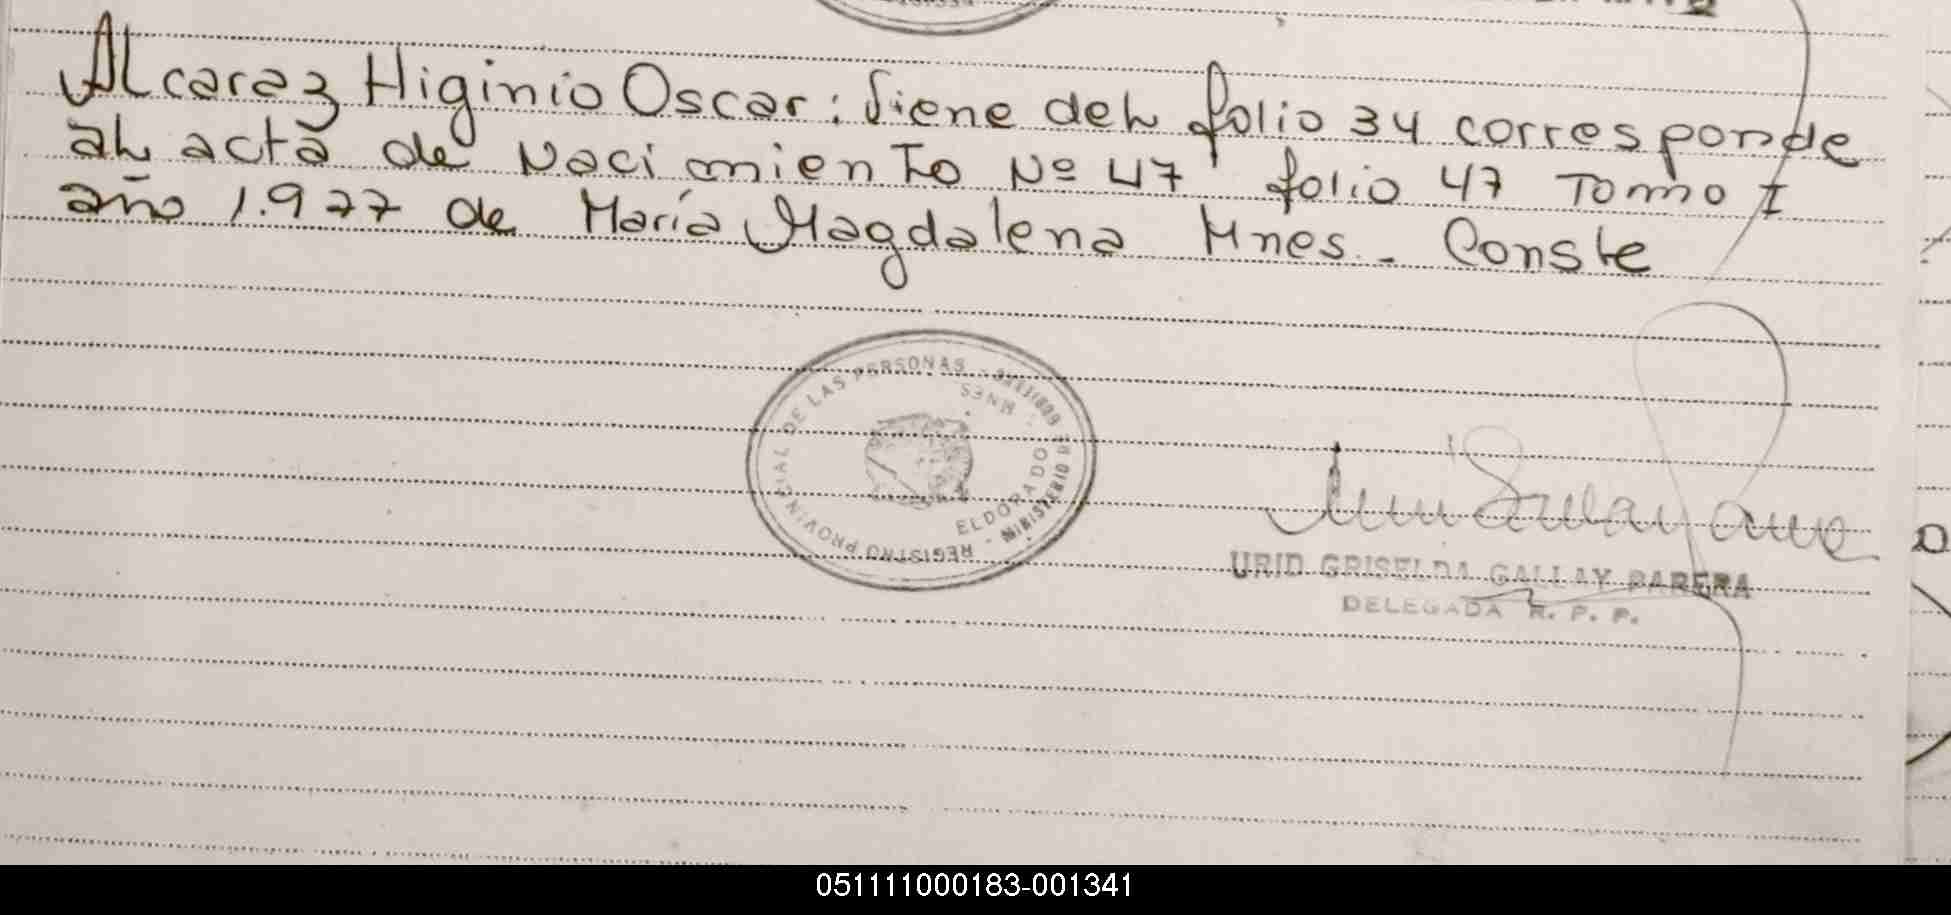 Alcaraz Higinio Oscar: Viene del folio 34 corresponde
al acta de Nacimiento Nº 47 folio 47 Tomo I
año 1.977 de María Magdalena Mnes.- Conste
REGISTRO PROVINCIAL DE LAS PERSONAS - MINISTERIO DE GOBIERNO
ELDORADO MNES.
URID GRISELDA GALLAY PARERA
DELEGADA R. P. P.
051111000183-001341